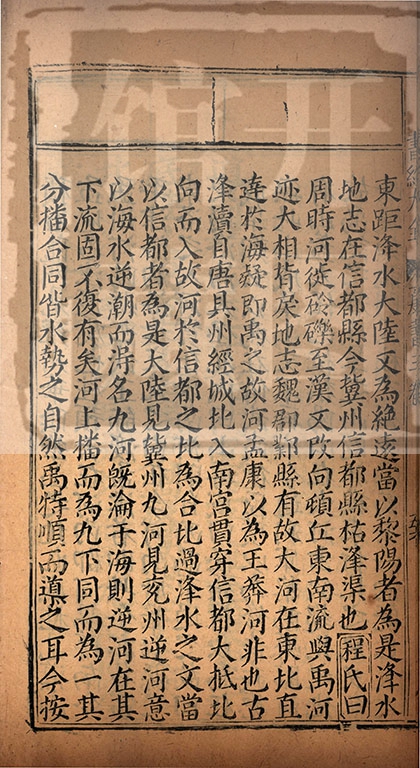 東距洚水大陸又為絶遠當以黎陽者為是洚水
地志在信都縣今冀州信都縣枯洚渠也程氏曰
周時河徙砱礫至漢又改向頓丘東南流與禹河
迹大相背戾地志魏郡鄴縣有故大河在東北直
達於海疑即禹之故河孟康以為王莽河非也古
洚瀆自唐具州經城北入南宮貫穿信都大抵北
向而入故河於信都之北為合北過洚水之文當
以信都者為是大陸見冀州九河見兖州逆河意
以海水逆潮而淂名九河旣淪于海則逆河在其
下流固不復有矣河上播而為九下同而為一其
分播合同皆水勢之自然禹特順而導之耳今按